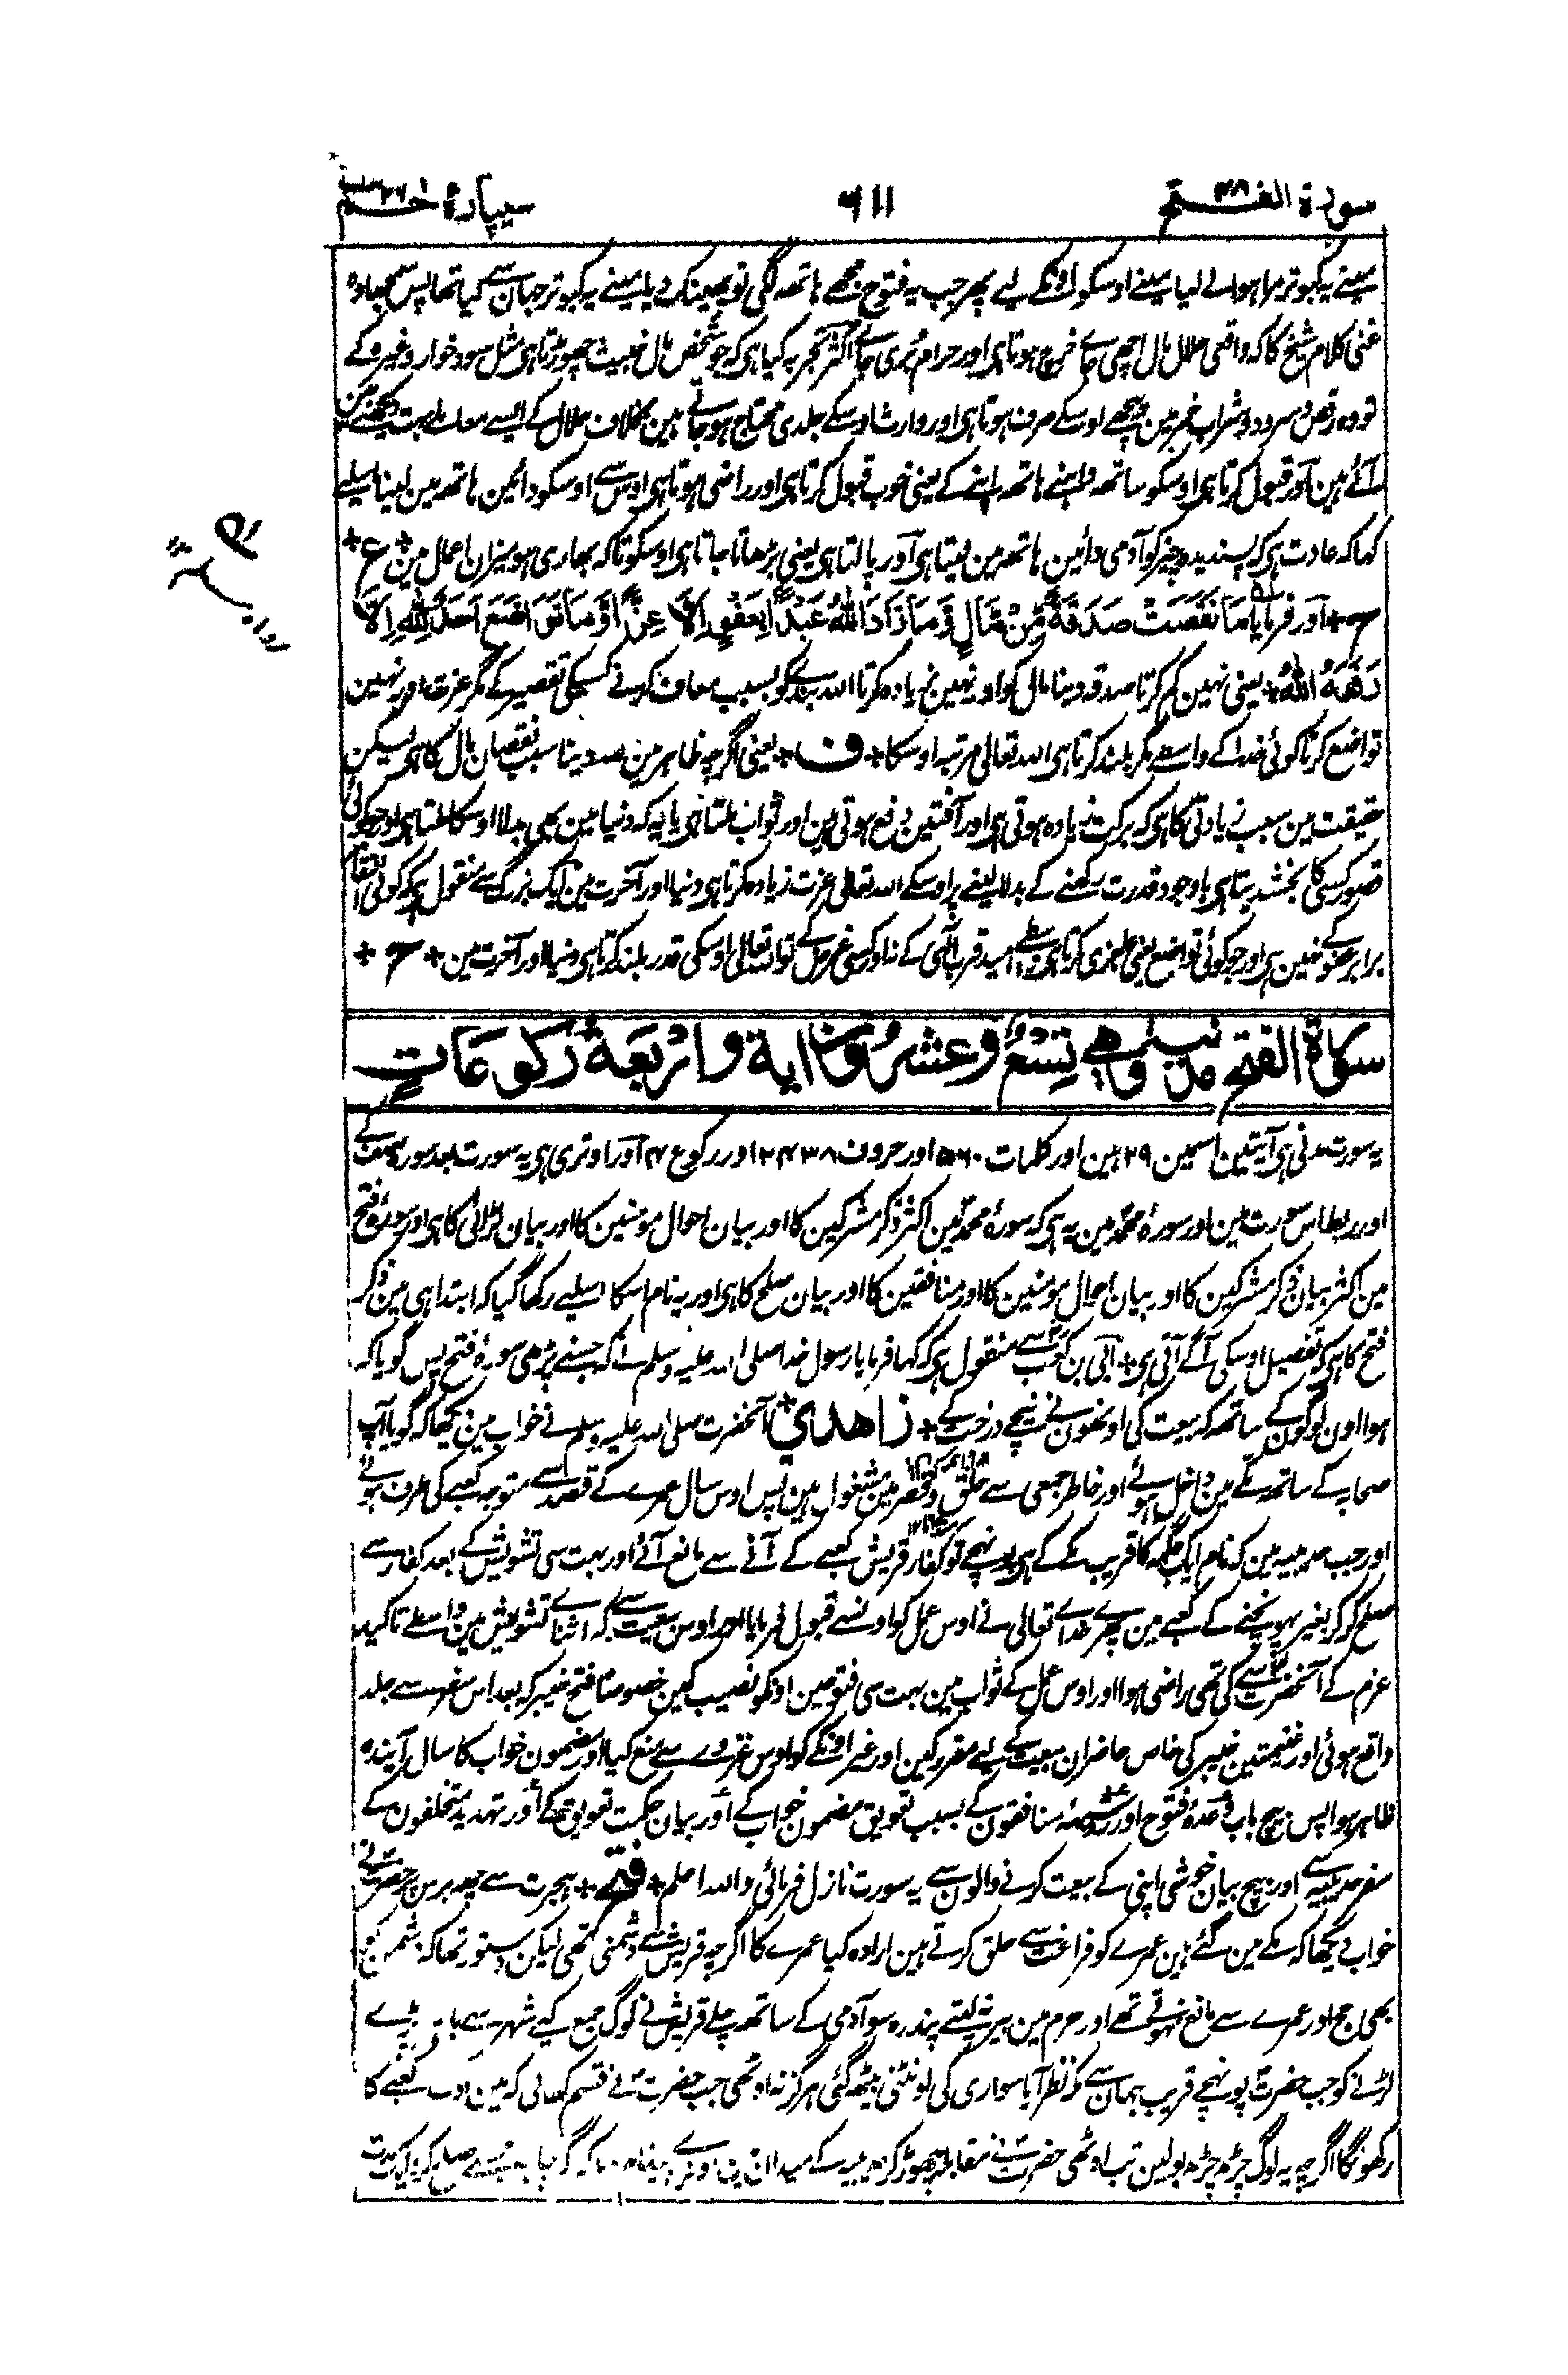 سورة الفتح ۴۸
۶۱۱
سیپارۂ حٰم ۲۶
مینے یہ کبوتر مرا ہوا لے لیا مینے اوسکو اونکے لیے پھر جب یہ فتوح مجھے ہاتھ لگی تو پھینک دیا مینے یہ کبوتر جہان سے کیا تھا پس سمجھا وہ
غنی کلام شیخ کا کہ واقعی حلال مال اچھی جاے خرچ ہوتا ہی اور حرام بُری جاے اکثر تجربہ کیا ہی کہ جو شخص مال خبیث چھوڑتا ہی مثل سود خوار وغیرہ کے
تو وہ رقص و سرود و شراب خمر مین پیچھے اوسکے صرف ہوتا ہی اور وارث اوسکے جلدی محتاج ہو جاتے ہین بخلاف حلال کے ایسے معاملے بہت دیکھنے مین
آئے ہین اور قبول کرتا ہی اوسکو ساتھ داہنے ہاتھ اپنے کے یعنی خوب قبول کرتا ہی اور راضی ہوتا ہی اوس سے اوسکو دائین ہاتھ مین لینا اسلیے
کہا کہ عادت ہی کہ پسندیدہ چیز کو آدمی دائین ہاتھ مین لیتا ہی اور پالتا ہی یعنی بڑھاتا جاتا ہی اوسکو تا کہ بھاری ہو میزان اعمال مین + ع +
+ ح + اور فرمایا مَا نَقَصَتْ صَدَقَةٌ مِّنْ مَّالٍ وَّمَا زَادَ اللّٰهُ عَبْدًا بِعَفْوٍ اِلَّا عِزًّا وَّمَا تَوَاضَعَ اَحَدٌ لِلّٰهِ اِلَّا
رَفَعَهُ اللّٰهُ + یعنی نہین کم کرتا صدقہ دینا مال کو اور نہین زیادہ کرتا اللہ بندے کو بسبب معاف کرنے کسیکی تقصیر کے مگر عزت اور نہین
تواضع کرتا کوئی خدا کے واسطے مگر بلند کرتا ہی اللہ تعالی مرتبہ اوسکا + ف + یعنی اگرچہ ظاہر مین صدقہ دینا سبب نقصان مال کا ہی لیکن
حقیقت مین سبب زیادتی کا ہی کہ برکت زیادہ ہوتی ہی اور آفتین دفع ہوتی ہین اور ثواب ملتا ہی یا یہ کہ دنیا مین بھی بدلا اوسکا ملتا ہی اور جو کوئی
قصور کسی کا بخشدیتا ہی باوجود قدرت رکھنے کے بدلا لینے پر اوسکے اللہ تعالی عزت زیادہ کرتا ہی دنیا اور آخرت مین ایک بزرگ سے منقول ہی کہ کوئی انتقام
برابر عفو کے نہین ہی اور جو کوئی تواضع یعنی عاجزی کرتا ہی واسطے امید قرب الٰہی کے نہ اور کسی غرض کے تو اللہ تعالی اوسکی قدر بلند کرتا ہی دنیا اور آخرت مین + ح +
سورة الفتح مدنية وهي تسع وعشرون اية واربعة ركوعات
یہ سورت مدنی ہی آیتین اسمین ۲۹ ہین اور کلمات ۵۶۰ اور حروف ۲۴۳۸ اور رکوع ۴ اور اوتری ہی یہ سورت بعد سورۂ صف کے
اور ربط اس سورت مین اور سورۂ محمد مین یہ ہی کہ سورۂ محمد مین اکثر ذکر مشرکین کا اور بیان احوال مومنین کا اور بیان لڑائی کا ہی اور سورۂ فتح
مین اکثر بیان ذکر مشرکین کا اور بیان احوال مومنین کا اور منافقین کا اور بیان صلح کا ہی اور یہ نام اسکا اسلیے رکھا گیا کہ ابتدا ہی مین ذکر
فتح کا ہی کہ تفصیل اوسکی آگے آتی ہی + اُبی بن کعب سے منقول ہی کہ کہا فرمایا رسول خدا صلی اللہ علیہ وسلم نے کہ جسنے پڑھی سورۂ فتح پس گویا کہ
ہوا اون لوگون کے ساتھ کہ بیعت کی اونھون نے نیچے درخت کے + زاهدي + آنحضرت صلی اللہ علیہ وسلم نے خواب مین دیکھا کہ گویا آپ
صحابہ کے ساتھ مکے مین داخل ہوئے اور خاطر جمعی سے حلق و قصر مین مشغول ہین پس اوس سال عمرے کے قصد سے متوجہ کعبے کی طرف ہوئے
اور جب حدیبیہ مین کہ نام ایک جگہ کا قریب مکے کے ہی پہونچے تو کفار قریش کعبے کے آنے سے مانع آئے اور بہت سی تشویش کے بعد کفار سے
صلح کر کر بغیر پہونچنے کے کعبے مین پھرے خداے تعالی نے اوس عمل کو اونسے قبول فرمایا اور اوس بیعت سے کہ اثناے تشویش مین واسطے تاکید
عزم کے آنحضرت سے کی تھی راضی ہوا اور اوس عمل کے ثواب مین بہت سی فتوحین اونکو نصیب کین خصوصًا فتح خیبر کہ بعد اس سفر سے جلد
واقع ہوئی اور غنیمتین خیبر کی خاص حاضران بیعت کے لیے مقرر کین اور غیر اونکے کو اوس غزوے سے منع کیا اور مضمون خواب کا سال آیندہ
ظاہر ہوا پس بیچ باب وعدۂ فتوح اور منافقون کے بسبب تعویق مضمون خواب کے اور بیان حکمت تعویق کے اور تہدید متخلفون کے
سفر حدیبیہ سے اور بیچ بیان خوشی اپنی کے بیعت کرنے والون سے یہ سورت نازل فرمائی واللہ اعلم + فتح + ہجرت سے چھ برس حضرت نے
خواب دیکھا کہ مکے مین گئے ہین عمرے کو فراغت سے حلق کرتے ہین ارادہ کیا عمرے کا اگرچہ قریش سے دشمنی تھی لیکن دستور تھا کہ دشمن کو
بھی حج اور عمرے سے مانع نہوتے تھے اور حرم مین بیر نہ لیتے پندرہ سو آدمی کے ساتھ چلے قریش نے لوگ جمع کیے شہر سے باہر پڑے
لڑنے کو جب حضرت پہونچے قریب جہان سے مکہ نظر آیا سواری کی اونٹنی بیٹھ گئی ہرگز نہ اوٹھی جب حضرت نے قسم کھائی کہ مین ادب کعبے کا
رکھونگا اگرچہ یہ لوگ چڑھ چڑھ بولین تب اوٹھی حضرت نے مقابلہ چھوڑ کر حدیبیہ کے میدان مین